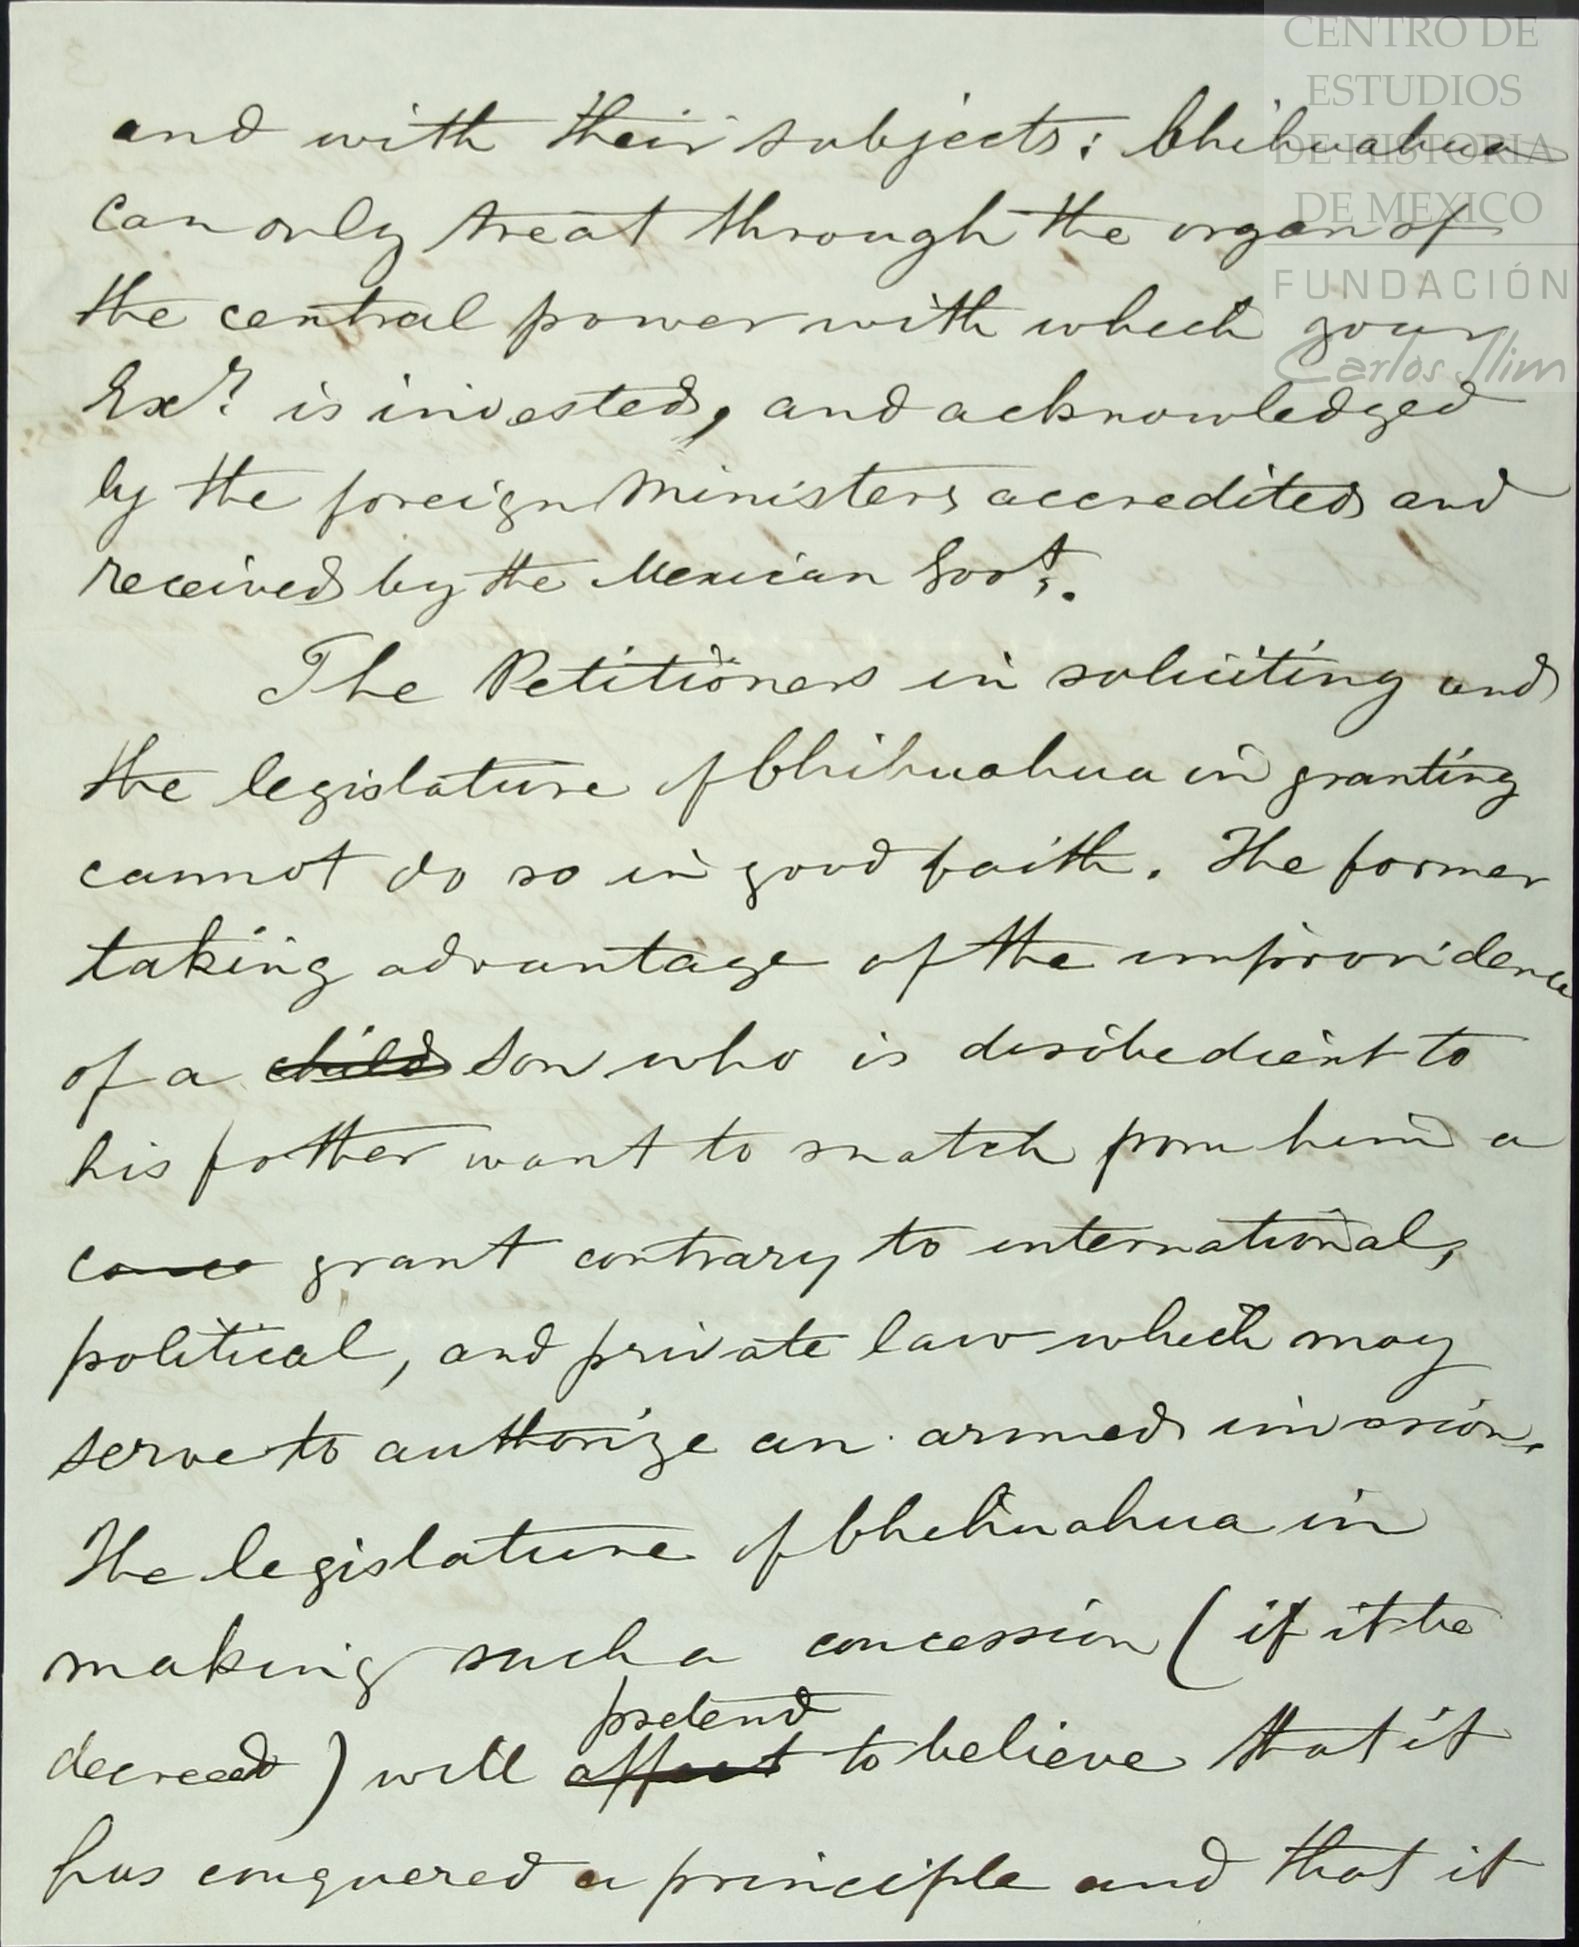 CENTRO DE
ESTUDIOS
DE HISTORIA
DE MEXICO
FUNDACIÓN
Carlos Slim
and with their subjects: Chihuahua
can only treat through the organ of
the central power with which your
Exy. is invested, and acknowledged
by the foreign Ministers accredited and
received by the Mexican Govt.
The Petitioners in soliciting and
the legislature of Chihuahua in granting
cannot do so in good faith. The former
taking advantage of the improvidence
of a child son who is disobedient to
his father want to snatch from him a
grant contrary to international,
political, and private law which may
serve to authorize an armed invasion.
The legislature of Chihuahua in
making such a concession (if it be
pretend
decreed) will affect to believe that it
has conquered a principle and that it